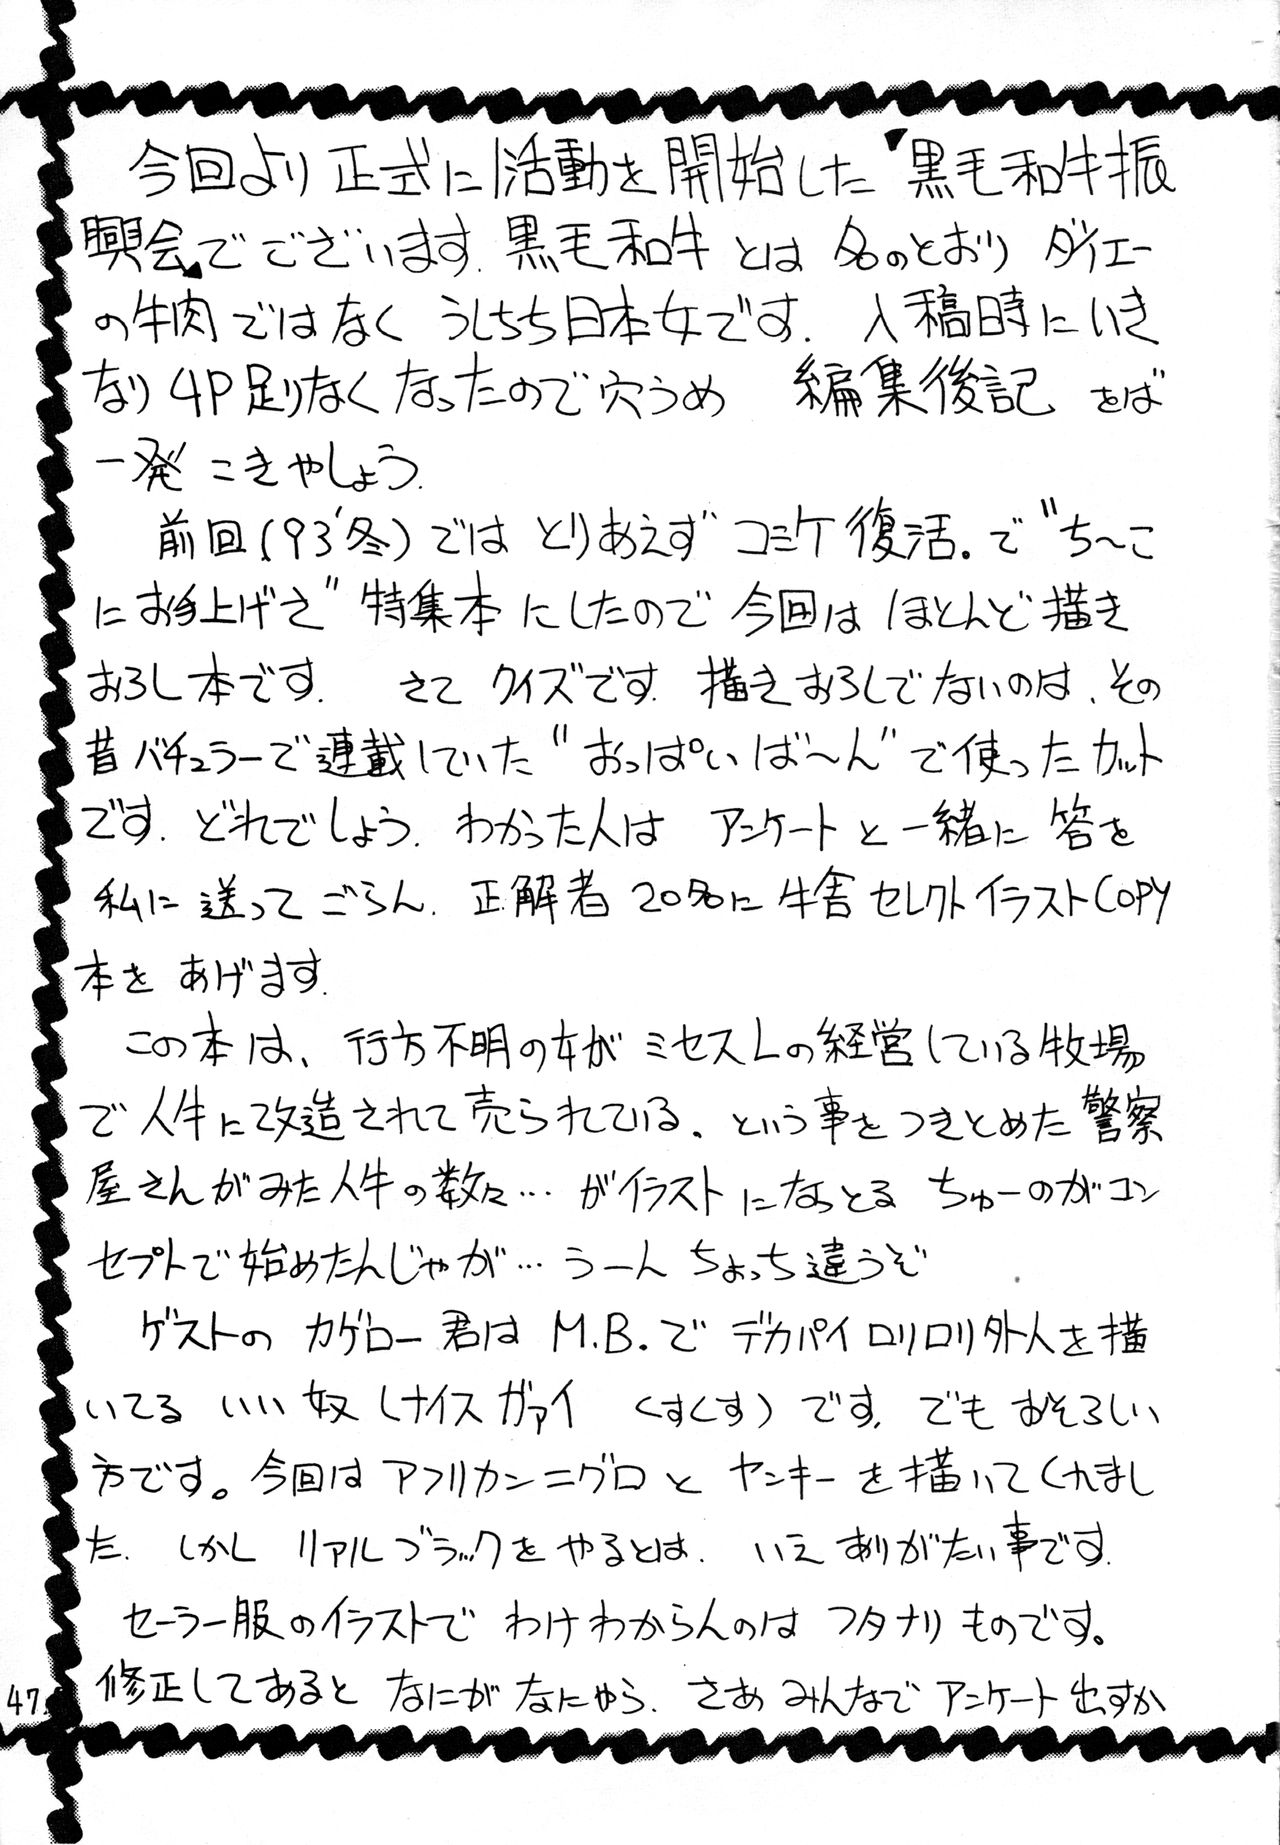 今回より正式に活動を開始した"黒毛和牛振
興会"でございます.黒毛和牛とは名のとおりダイエー
の牛肉ではなくうしちち日本女です.入稿時にいき
なり4P足りなくなったので穴うめ 編集後記をば
一発こきやしょう.
前回(93'冬)ではとりあえずコミケ復活。で"ち〜こ
にお手上げさ"特集本にしたので今回はほとんど描き
おろし本です. さてクイズです.描きおろしでないのは、その
昔バチュラーで連載していた"おっぱいば〜ん"で使ったカット
です.どれでしょう.わかった人は アンケートと一緒に答を
私に送ってごらん.正解者20名に牛舎セレクトイラストCOPY
本をあげます.
この本は、行方不明の女がミセスLの経営している牧場
で人牛に改造されて売られている、という事をつきとめた警察
屋さんがみた人牛の数々…がイラストになっとるちゅーのがコン
セプトで始めたんじゃが…うーんちょっち違うぞ
ゲストのカゲロー君はM.B.でデカパイロリロリ外人を描
いてる いい奴(ナイスガァイ くすくす)です.でもおそろしい
方です。今回はアフリカンニグロとヤンキーを描いてくれまし
た.しかしリアルブラックをやるとは. いえありがたい事です.
セーラー服のイラストでわけわからんのはフタナリものです。
修正してあるとなにがなにやら.さあみんなでアンケート出すか
47.